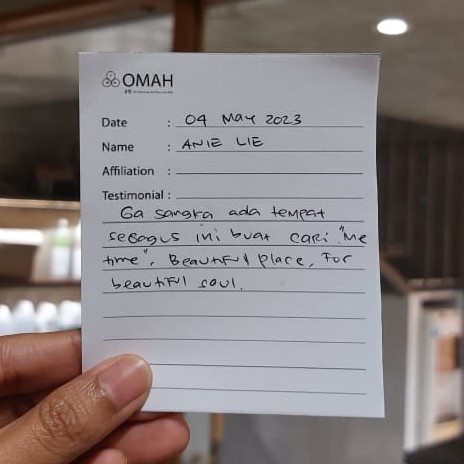 OMAH
Date : 04 May 2023
Name : ANIE LIE
Affiliation :
Testimonial :
Ga sangka ada tempat
sebagus ini buat cari "Me
time". Beautiful place, For
beautiful soul.